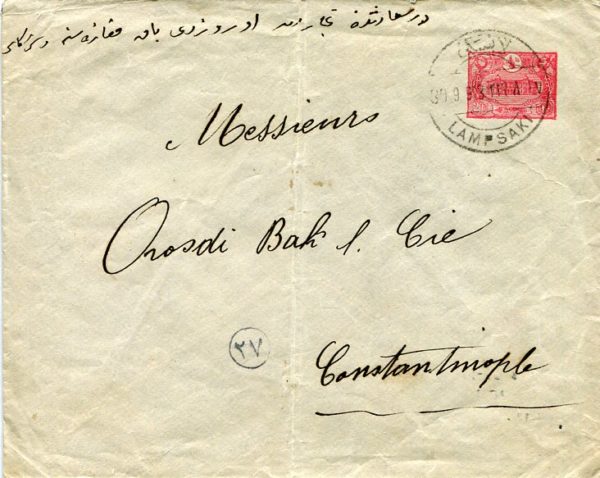 در سعادتده تجاردن اوروزدی باق مغازه سنه
LAMPSAKI
Messieurs
Orosdi Bak & Cie
٢٧
Constantinople